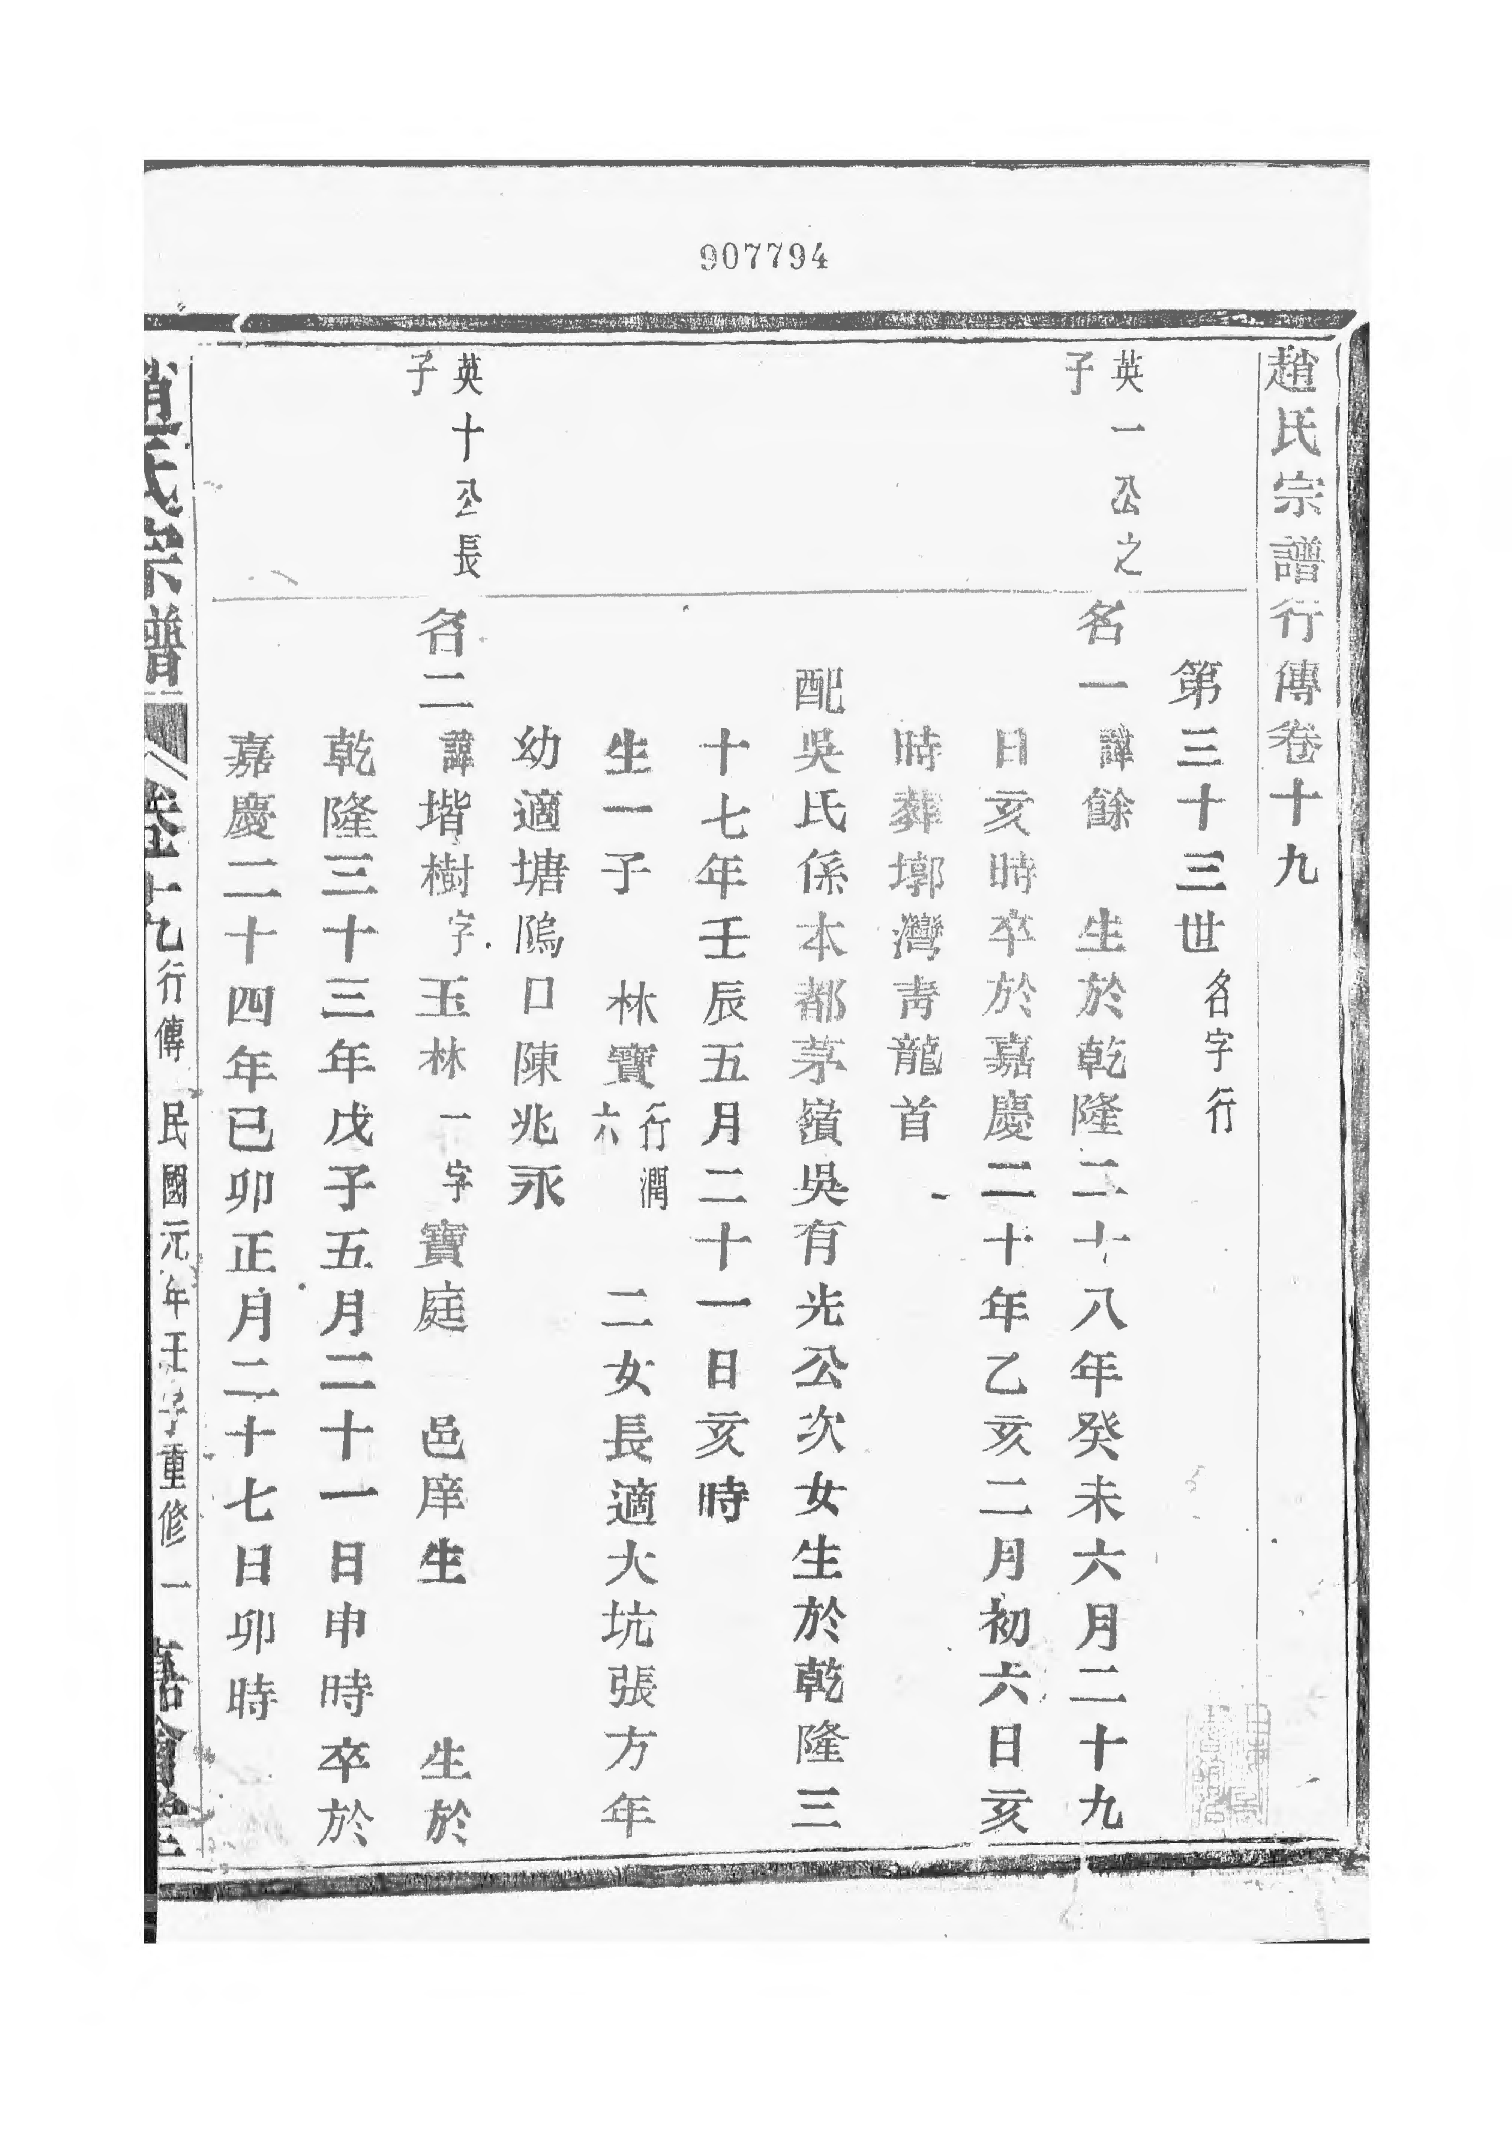 907794
趙氏宗譜行傳卷十九
第三十三世名字行
英一公之
子
名一諱餘　生於乾隆二十八年癸未六月二十九
日亥時卒於嘉慶二十年乙亥二月初六日亥
時葬墎灣青龍首
配吳氏係本都茅嶺吳有光公次女生於乾隆三
十七年壬辰五月二十一日亥時
生一子　林寶行潤六　二女長適大坑張方年
幼適塘隝口陳兆永
英十公長
子
名二諱堦樹字玉林一字寶庭　邑庠生　生於
乾隆三十三年戊子五月二十一日申時卒於
嘉慶二十四年己卯正月二十七日卯時
趙氏宗譜　卷十九行傳　民國元年壬子重修　一　嘉會堂